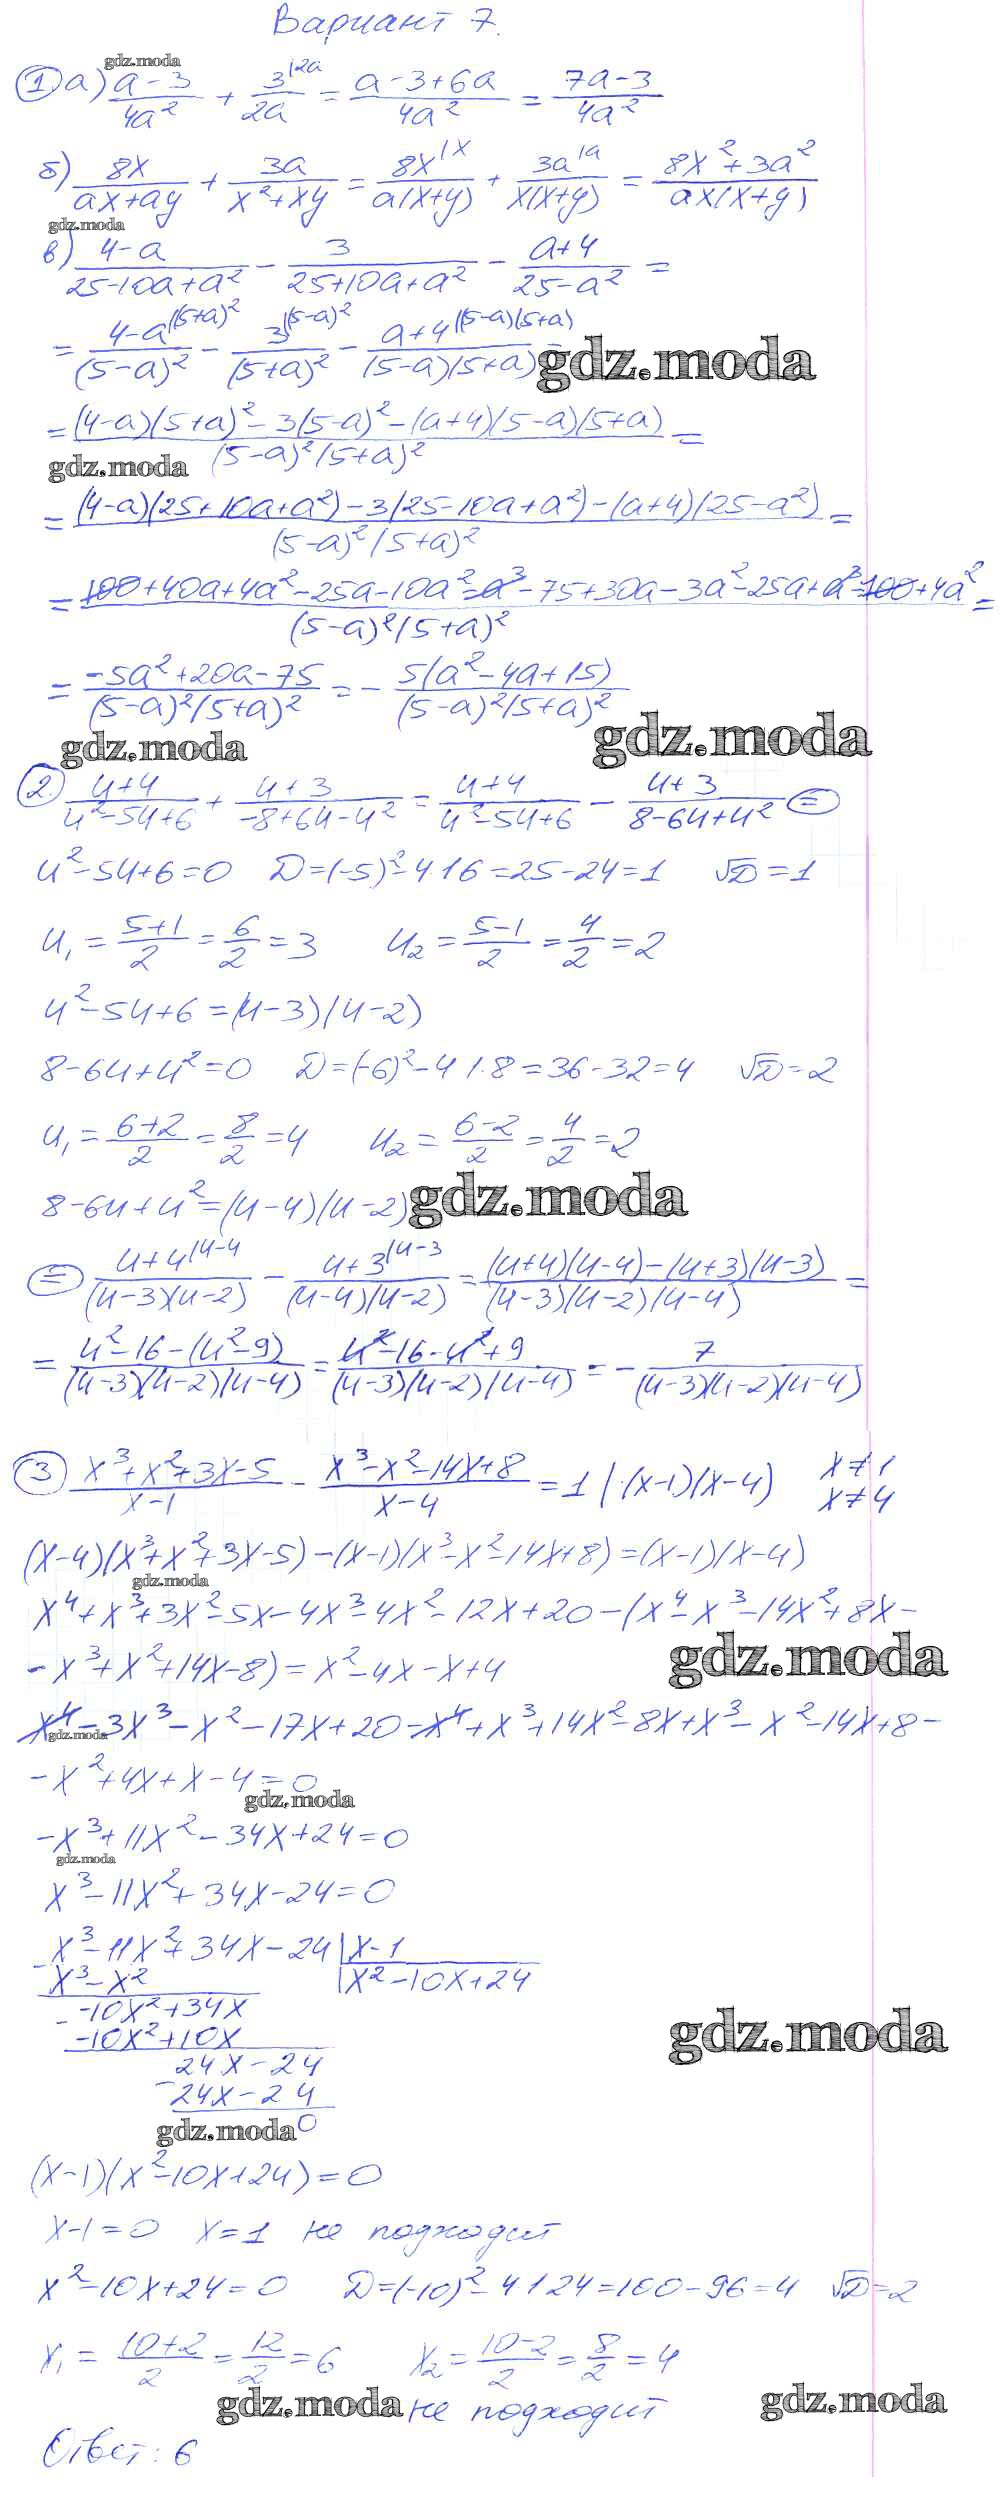 Вариант 7.
gdz.moda
① а) (a-3)/(4a²) + 3^{|2a}/(2a) = (a-3+6a)/(4a²) = (7a-3)/(4a²)
б) 8x/(ax+ay) + 3a/(x²+xy) = 8x^{|x}/(a(x+y)) + 3a^{|a}/(x(x+y)) = (8x²+3a²)/(ax(x+y))
gdz.moda
в) (4-a)/(25-10a+a²) - 3/(25+10a+a²) - (a+4)/(25-a²) =
= (4-a)^{|(5+a)²}/(5-a)² - 3^{|(5-a)²}/(5+a)² - (a+4)^{|(5-a)(5+a)}/((5-a)(5+a)) =
gdz.moda
= ((4-a)(5+a)²-3(5-a)²-(a+4)(5-a)(5+a))/((5-a)²(5+a)²) =
gdz.moda
= ((4-a)(25+10a+a²)-3(25-10a+a²)-(a+4)(25-a²))/((5-a)²(5+a)²) =
= (100+40a+4a²-25a-10a²-a³-75+30a-3a²-25a+a³-100+4a²)/((5-a)²(5+a)²) =
= (-5a²+20a-75)/((5-a)²(5+a)²) = - 5(a²-4a+15)/((5-a)²(5+a)²)
gdz.moda
gdz.moda
② (u+4)/(u²-5u+6) + (u+3)/(-8+6u-u²) = (u+4)/(u²-5u+6) - (u+3)/(8-6u+u²) ⊜
u²-5u+6=0 D=(-5)²-4·1·6=25-24=1 √D=1
u₁ = (5+1)/2 = 6/2 = 3 u₂ = (5-1)/2 = 4/2 = 2
u²-5u+6=(u-3)(u-2)
8-6u+u²=0 D=(-6)²-4·1·8=36-32=4 √D=2
u₁ = (6+2)/2 = 8/2 = 4 u₂ = (6-2)/2 = 4/2 = 2
8-6u+u²=(u-4)(u-2)
gdz.moda
⊜ (u+4)^{|u-4}/((u-3)(u-2)) - (u+3)^{|u-3}/((u-4)(u-2)) = ((u+4)(u-4)-(u+3)(u-3))/((u-3)(u-2)(u-4)) =
= (u²-16-(u²-9))/((u-3)(u-2)(u-4)) = (u²-16-u²+9)/((u-3)(u-2)(u-4)) = - 7/((u-3)(u-2)(u-4))
③ (x³+x²+3x-5)/(x-1) - (x³-x²-14x+8)/(x-4) = 1 |·(x-1)(x-4) x≠1
x≠4
(x-4)(x³+x²+3x-5)-(x-1)(x³-x²-14x+8)=(x-1)(x-4)
gdz.moda
x⁴+x³+3x²-5x-4x³-4x²-12x+20-(x⁴-x³-14x²+8x-
gdz.moda
-x³+x²+14x-8)=x²-4x-x+4
x⁴-3x³-x²-17x+20-x⁴+x³+14x²-8x+x³-x²-14x+8-
gdz.moda
-x²+4x+x-4=0
gdz.moda
-x³+11x²-34x+24=0
gdz.moda
x³-11x²+34x-24=0
-x³-11x²+34x-24 |x-1
x³-x² |x²-10x+24
- -10x²+34x
-10x²+10x
gdz.moda
24x-24
-24x-24
0
gdz.moda
(x-1)(x²-10x+24)=0
x-1=0 x=1 не подходит
x²-10x+24=0 D=(-10)²-4·1·24=100-96=4 √D=2
x₁ = (10+2)/2 = 12/2 = 6 x₂ = (10-2)/2 = 8/2 = 4
gdz.moda
не подходит
gdz.moda
Ответ: 6